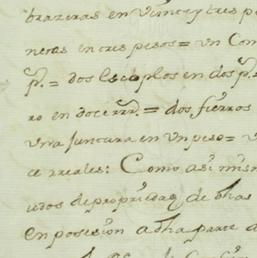 brazeras en veinte y tres p
netas en tres pesos = un Com
p.s = dos Escoplos en dos p.s
ro en doce rr.s = dos fierros
una juntura en un peso = v
ce rreales: Como asi mism
de propriedad de dhas
en posesion a dha parte d